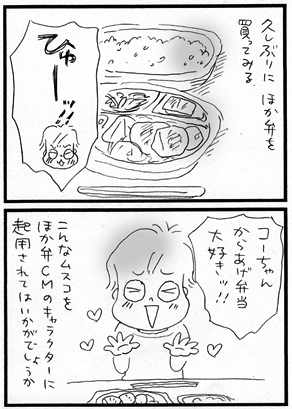 久しぶりに ほか弁を
買ってみる
ひゅーーッ!!
コーちゃん
からあげ弁当
大好きッ!!
こんなムスコを
ほか弁CMのキャラクターに
起用されてはいかがでしょうか